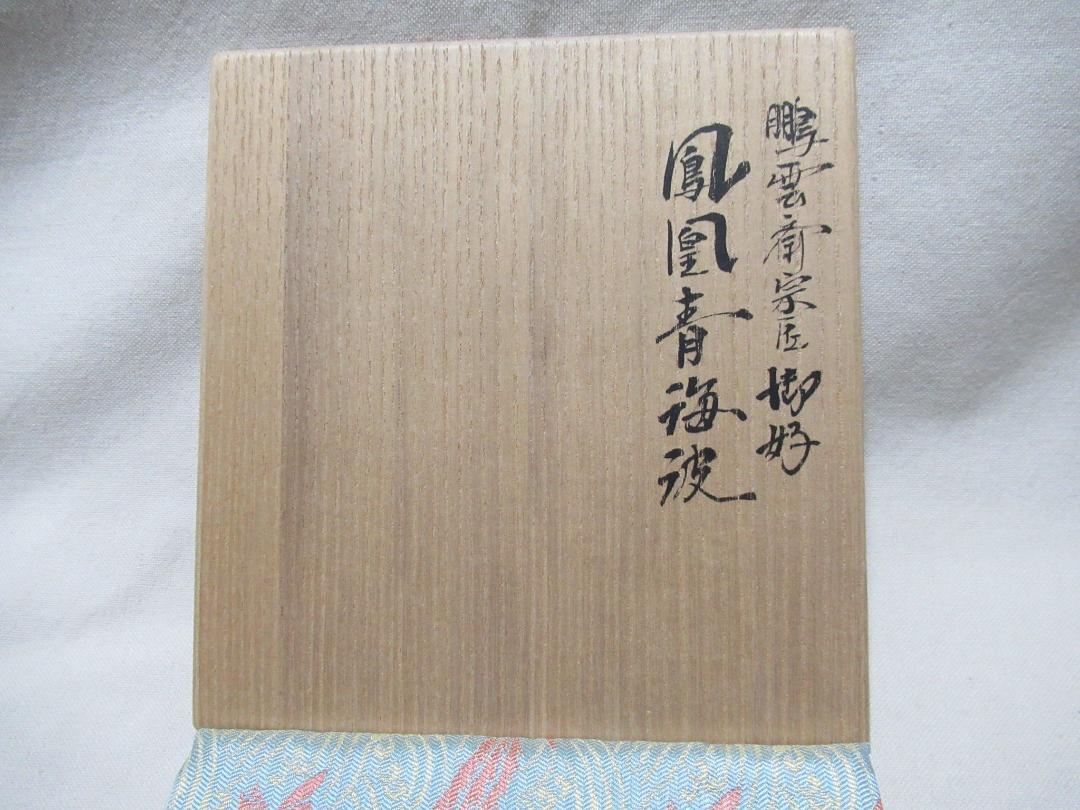 鵬雲斎宗匠御好
鳳凰青海波